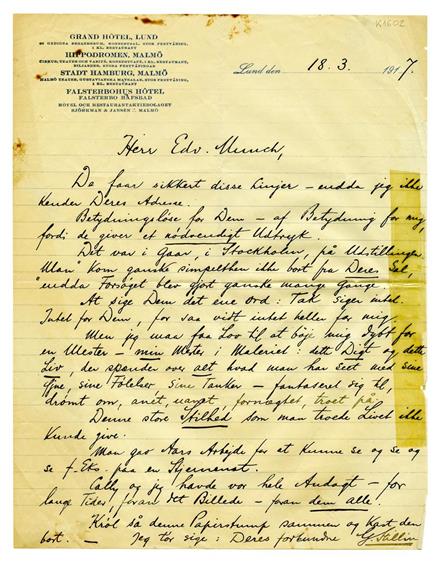 K1602
GRAND HÔTEL, LUND
1 KL. RESTAURANT
HIPPODROMEN, MALMÖ
CIRKUS, TEATER OCH VARIÉTÉ, 1 KL. RESTAURANT,
STADT HAMBURG, MALMÖ
1 KL. RESTAURANT
FALSTERBOHUS HÔTEL
FALSTERBO HAFSBAD
HÔTEL OCH RESTAURANTAKTIEBOLAGET
MALMÖ
Lund den 18.3. 1917.
Herr Edv. Munch,
De faar sikkert disse Linjer – endda jeg ikke
kender Deres Adresse.
Betydningsløse for Dem – af Betydning for mig,
fordi de giver et nødvendigt Udtryk.
Det var i Gaar, i Stockholm, på Udstillingen.
Man kom ganske simpelthen ikke bort fra Deres Sal,
endda Forsøget blev gjort ganske mange Gange.
At sige Dem det ene Ord: Tak siger intet.
Intet for Dem, for saa vidt intet heller for mig.
Men jeg maa faa Lov til at bøje mig dybt for
en Mester – min Mester i Maleriet: dette Digt og dette
Liv, der spænder over alt hvad man har seet med sine
Øjne, sine Følelser, sine Tanker – fantaseret sig til,
drømt om, anet, uanet, fornægtet, troet på.
Denne store Stilhed som man troede Livet ikke
kunde give.
Man gav Aars Arbejde for at kunne se og se og
se f. Eks. paa en Stjernenat.
Cally og jeg havde vor hele Andagt – for
lange Tider, foran det Billede – foran dem alle.
Krøl så denne Papirstump sammen og kast den
bort. – Jeg tør sige: Deres forbundne G. Sallin